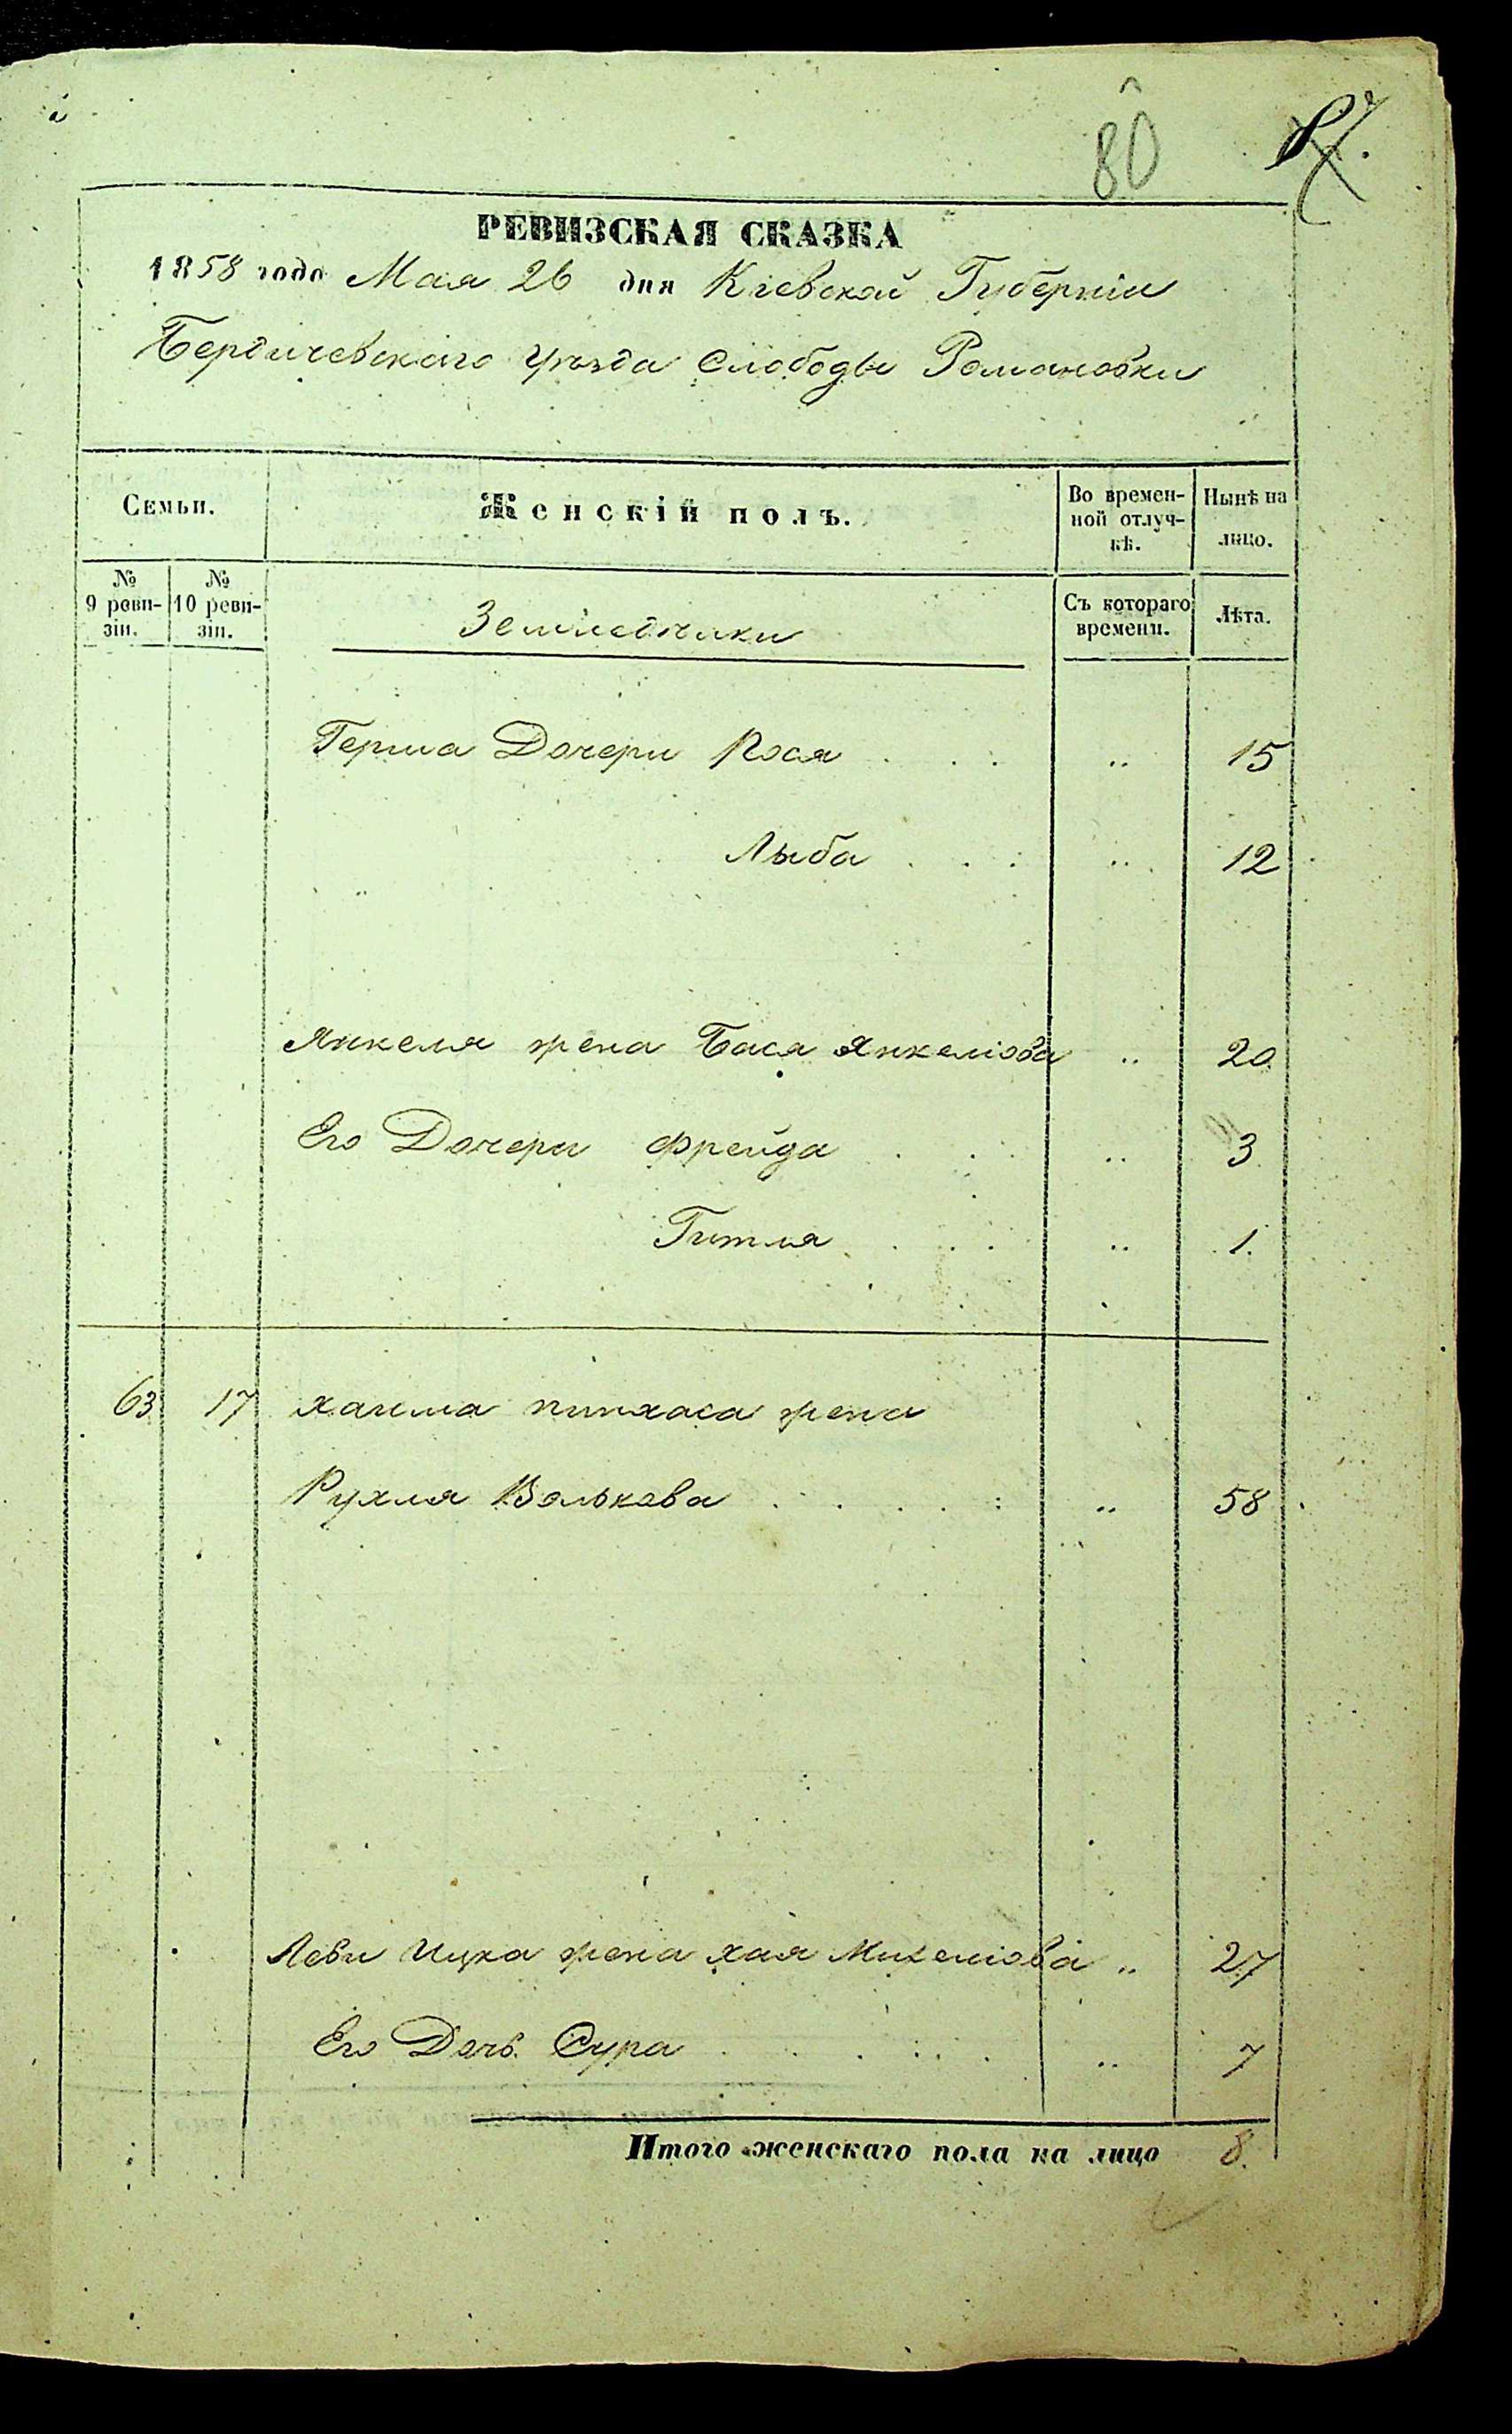 80
РЕВИЗСКАЯ СКАЗКА
1858 года Мая 26 дня Кіевской Губерніи
Бердичевскаго уѣзда Слободы Романовки
Семьи.
Женскій полъ.
Во времен-
ной отлуч-
кѣ.
Нынѣ на
лицо.
№
9 реви-
зіи.
№
10 реви-
зіи.
Съ котораго
времени.
Лѣта.
Герша Дочери Рося . . . „ 15
Лыба . . . „ 12
„
Янкеля жена Бася Янкеліова „ 20
Его Дочери Фрейда . . . „ 3
Гитля . . . „ 1.
63 17 Хаима пинхаса жена
Рухля Волькова . . . . . „ 58
Леви Ицка жена хая Михеліова „ 27
Его Дочь Сура . . . . . „ 7
Итого женскаго пола на лицо 8.